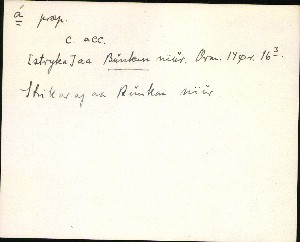 á præp.
c. acc.
[stryka] aa Búnkan niúr. Orm. 14pr. 16³.
Strikar og aa Búnkan niúr